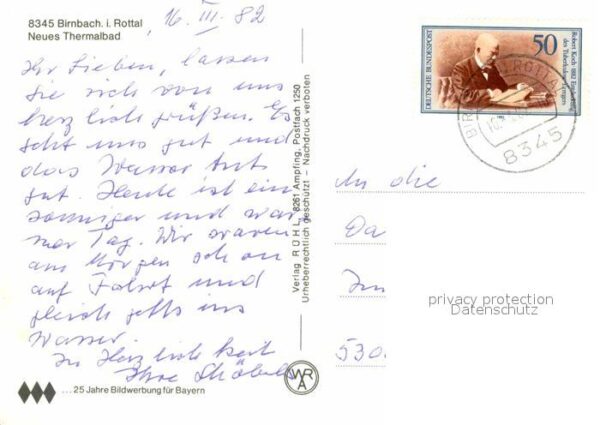 8345 Birnbach. i. Rottal
Neues Thermalbad
16. III. 82
Ihr Lieben, lassen
Sie sich von uns
herzlich grüßen. Es
geht uns gut und
das Wasser tut
gut. Heute ist ein
sonniger und war
mer Tag. Wir waren
am Morgen schon
auf Fahrt und
gleich gehts ins
Wasser.
In Herzlichkeit
Ihre
... 25 Jahre Bildwerbung für Bayern
Verlag RÜHL, 8261 Ampfing, Postfach 1250
Urheberrechtlich geschützt - Nachdruck verboten
WRA
DEUTSCHE BUNDESPOST
50
Robert Koch 1882 Entdeckung
des Tuberkulose-Erregers
8345
An die
Da
Im
530
privacy protection
Datenschutz